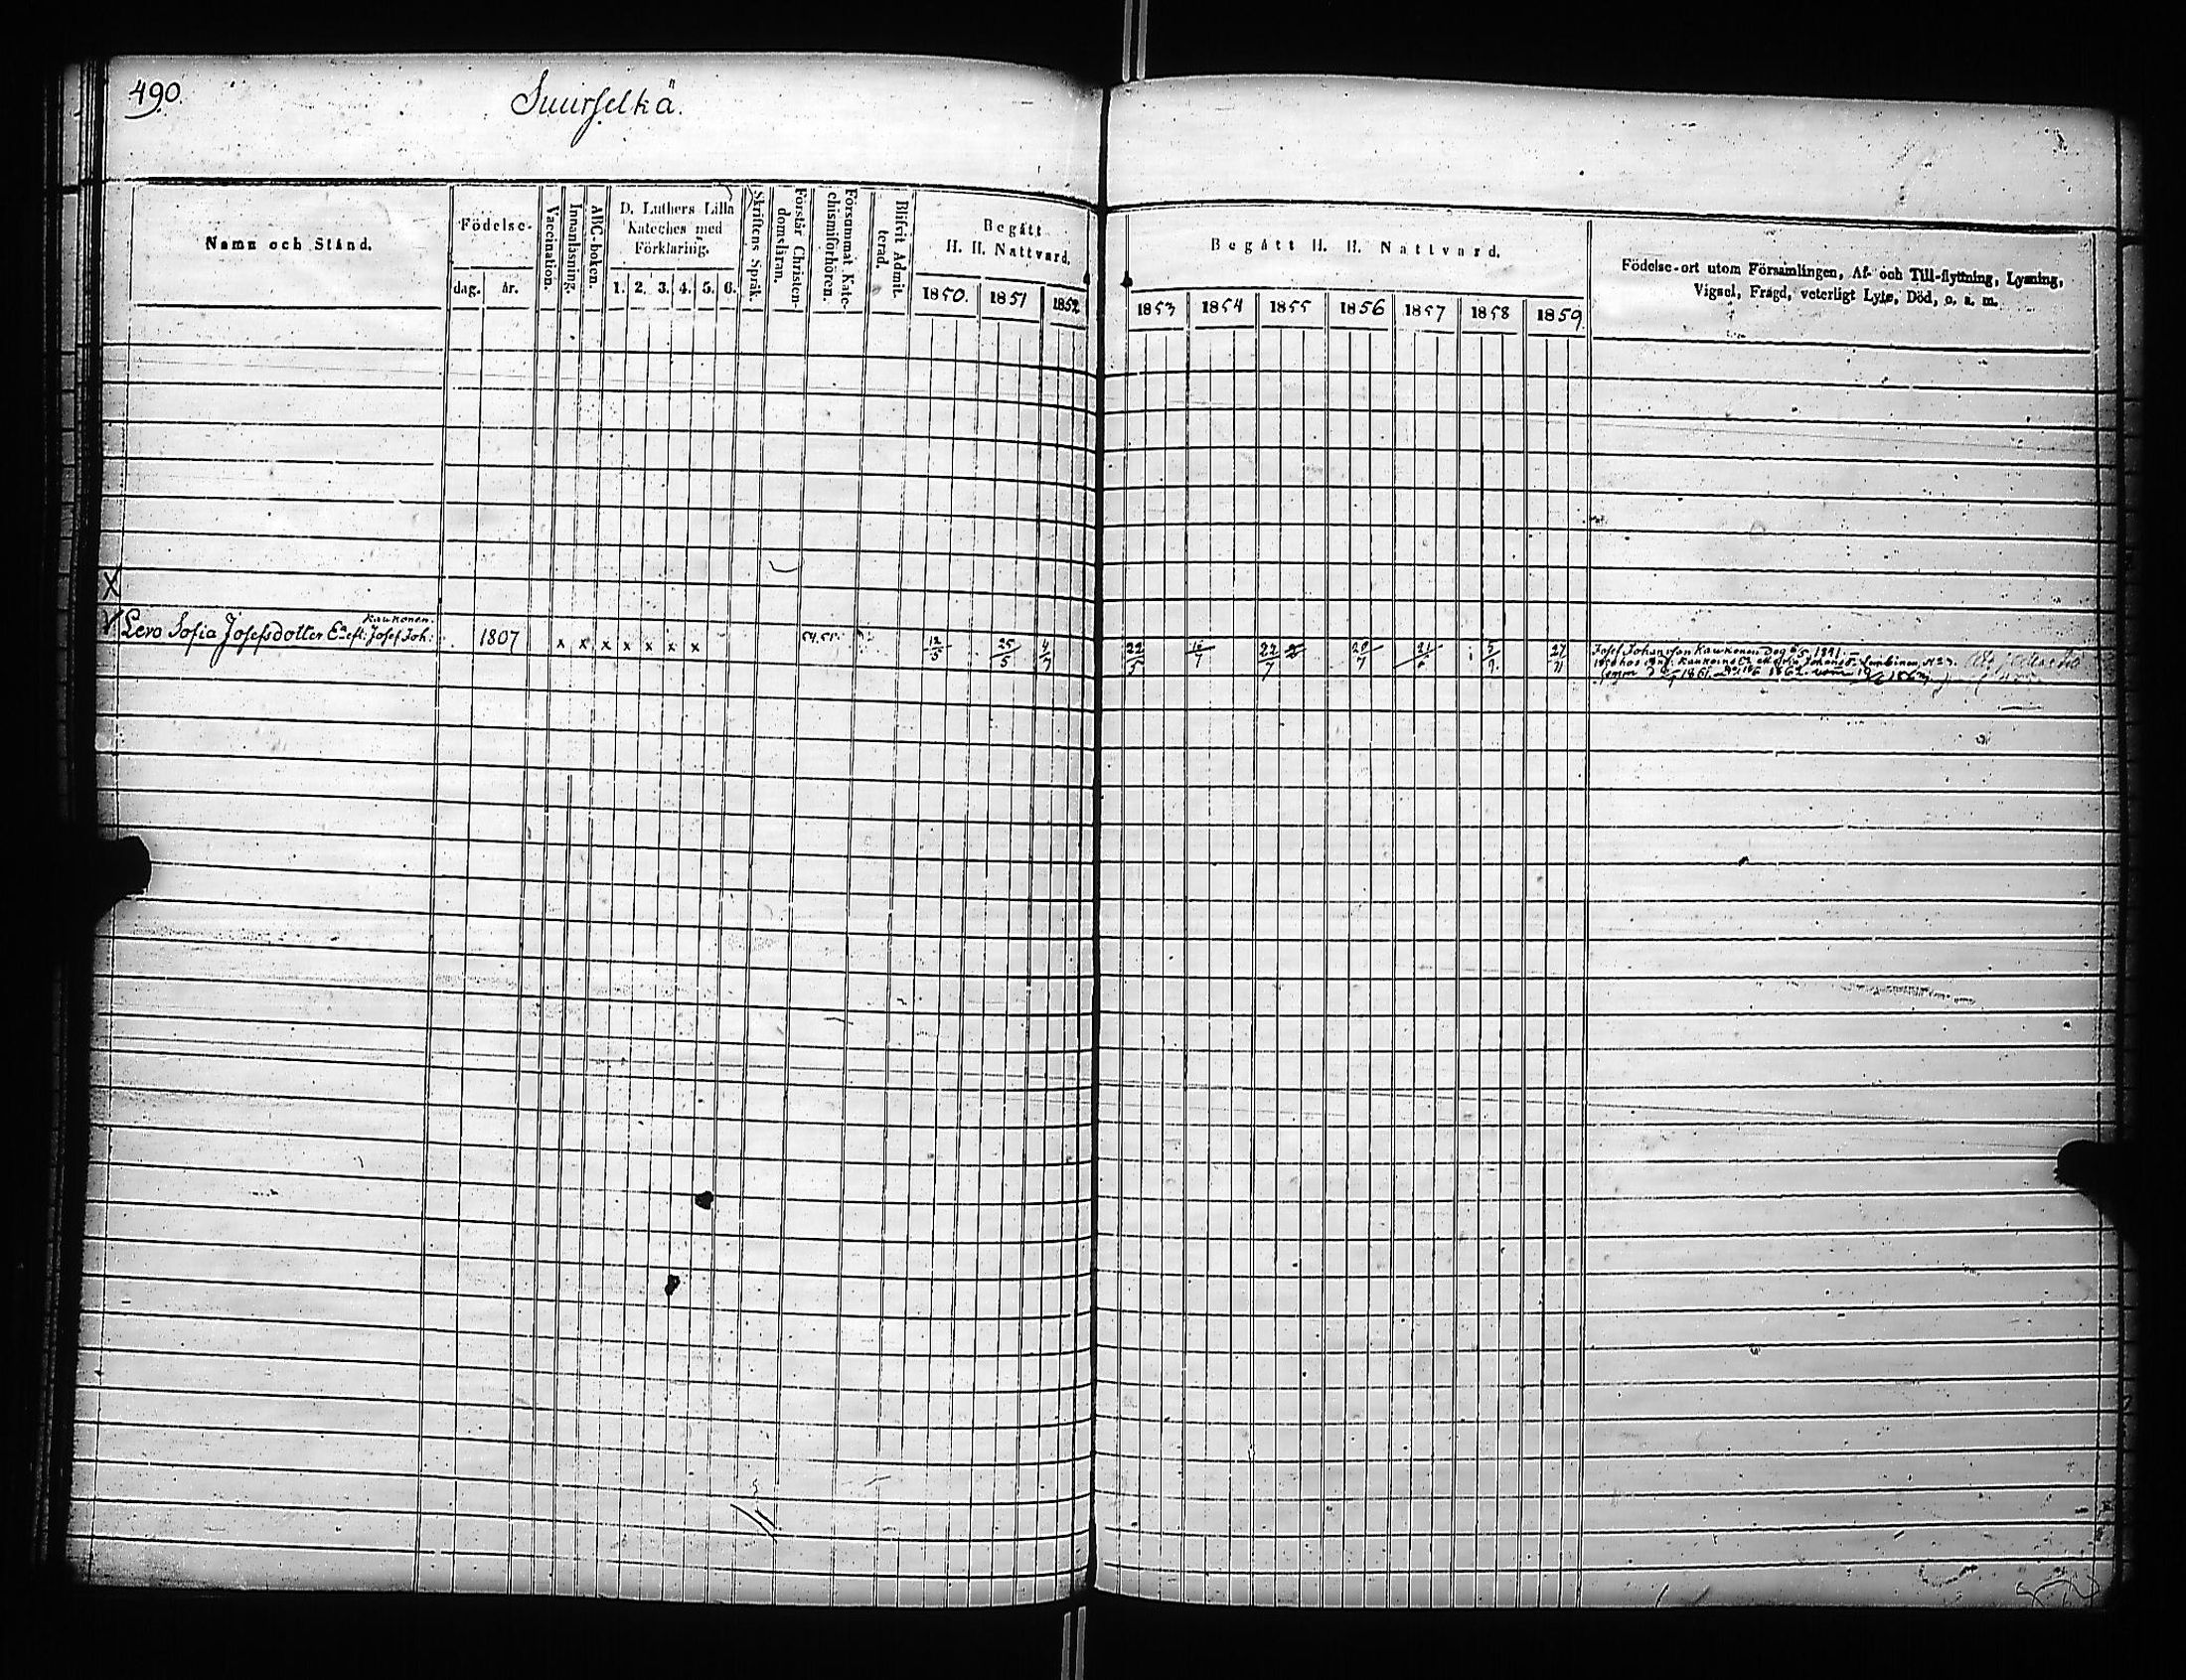 490.
Suurselkä.
Namn och Stånd.
Födelse-
dag. år.
Vaccination.
Innanläsning.
ABC-boken.
D. Luthers Lilla
Kateches med
Förklaring.
1. 2. 3. 4. 5. 6.
Skriftens Språk.
Förstår Christen-
domsläran.
Försummat Kate-
chismiförhören.
Blifvit Admit-
terad.
Begått
H. H. Nattvard.
1850. 1851 1852
Begått H. H. Nattvard.
1853 1854 1855 1856 1857 1858 1859.
Födelse-ort utom Församlingen, Af- och Till-flyttning, Lysning,
Vigsel, Frägd, veterligt Lyte, Död, o. s. m.
X
Kaukonen.
V Levo Sofia Josefsdotter Eª eft: Josef Joh: 1807 x x x x x x x 54.55. 12/5 25/5 4/7 22/5 22/7 20/7 5/9. 27/11
Josef Johansson Kaukonen Dog 1841.